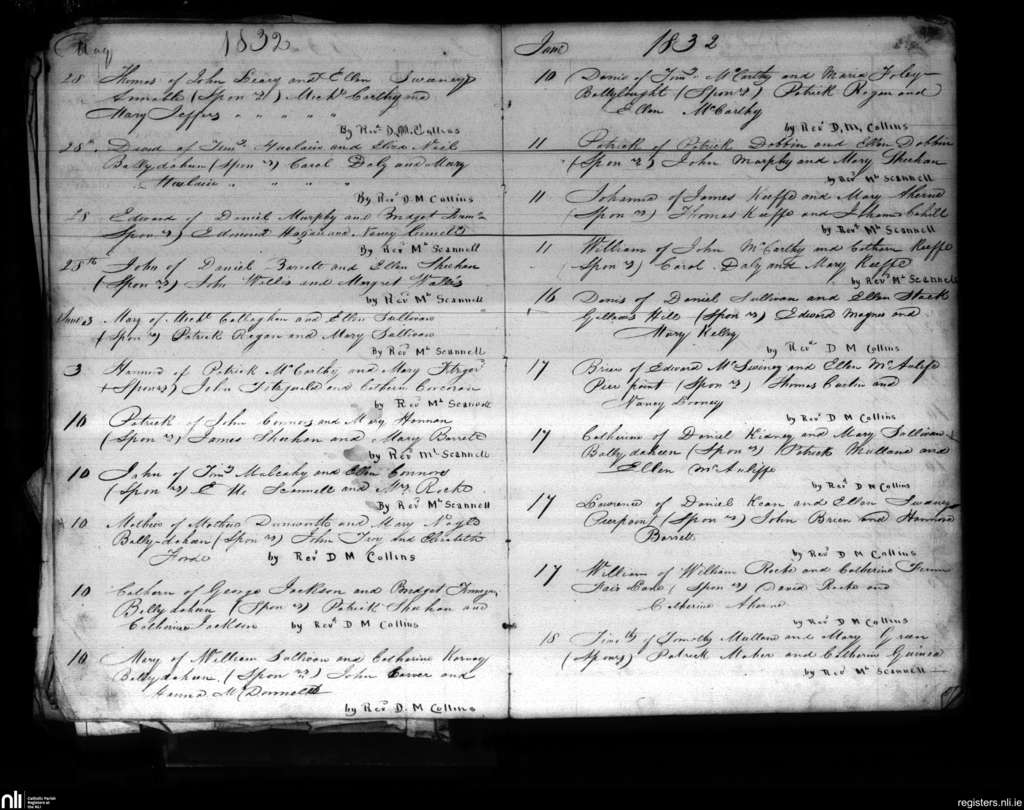 May 1832
28 Thomas of John Leary and Ellen Sweaney
(Spon rs) Mich l Carthy and
Mary Jeffers " " " " "
By Rev d D. M. Collins
28 th David of Tim y and Eliza Neil
Ballydaheen (Spon rs) Carol Daly and Mary
" " "
By Rev d D M Collins
28 Edward of Daniel Murphy and Bridget
Spon rs) Edmond Hagan and Nancy
By Rev d M r Scannell
28 th John of Daniel Barrett and Ellen Sheehan
(Spon rs) John Wallis and Margret Wallis
by Rev d M r Scannell
June 3 Mary of Mich l Callaghan and Ellen Sullivan
(Spon rs) Patrick Regan and Mary Sullivan
By Rev d M r Scannell
3 Hannora of Patrick McCarthy and Mary
(Spon rs) John Fitzgerald and Cathern Corcoran
by Rev d M r Scannell
10 Patrick of John Connors and Mary Honnan
(Spon rs) James Sheehan and Mary Barrett
by Rev d M r Scannell
10 John of Tim y Mulcahy and Ellen Connors
(Spon rs) Scannell and Mrs Roche
By Rev d M r Scannell
10 Mathew of Mathew Dunworth and Mary Nagle
Bally-dahan (Spon rs) John Troy and Elizabeth
Forde by Rev d D M Collins
10 Cathern of George Jackson and Bridget Finnegan
Ballydahan (Spon rs) Patrick Sheehan and
Catherine Jackson by Rev d D M Collins
10 Mary of William Sullivan and Catharine
Ballydaheen. (Spon rs) John Carver and
Hanna McDonnell
by Rev d D. M Collins
June 1832
10 Denis of Tim y McCarthy and Maria Foley
Ballylought (Spon rs) Patrick Regan and
Ellen McCarthy
by Rev d D, M, Collins
11 Patrick of Patrick Dobbin and Ellen Dobbin
(Spon rs) John Murphy and Mary Sheehan
by Rev d M r Scannell
11 Johanna of James Keeffe and Mary Aherne
(Spon rs) Thomas Keeffe and Johana Cahill
by Rev d M r Scannell
11 William of John McCarthy and Cathern Keeffe
(Spon rs) Carol Daly and Mary Keeffe
by Rev d M r Scannell
16 Denis of Daniel Sullivan and Ellen Stack
Gallows Hill (Spon rs) Edward Magner and
Mary Kelly
by Rev d D M Collins
17 Brien of Edward McSwiney and Ellen McAuliffe
Pierpoint (Spon rs) Thomas Cashin and
Nancy Looney
by Rev d D M Collins
17 Catherine of Daniel Kidney and Mary Sullivan
Ballydaheen (Spon rs) Patrick Mullane and
Ellen McAuliffe
by Rev d D M Collins
17 Lawrence of Daniel Kean and Ellen Sweaney
Pierpoint (Spon rs) John Breen and Hannora
Barrett
by Rev d D M Collins
17 William of William Roche and Catherine
Fair Lane (Spon rs) David Roche and
Catherine Aherne
by Rev d D M Collins
18 Timothy of Timothy Mullane and Mary Green
(Spon rs) Patrick Maher and Catherine Guinea
by Rev d M r Scannell
nli
Catholic Parish
Registers at
the NLI
registers.nli.ie